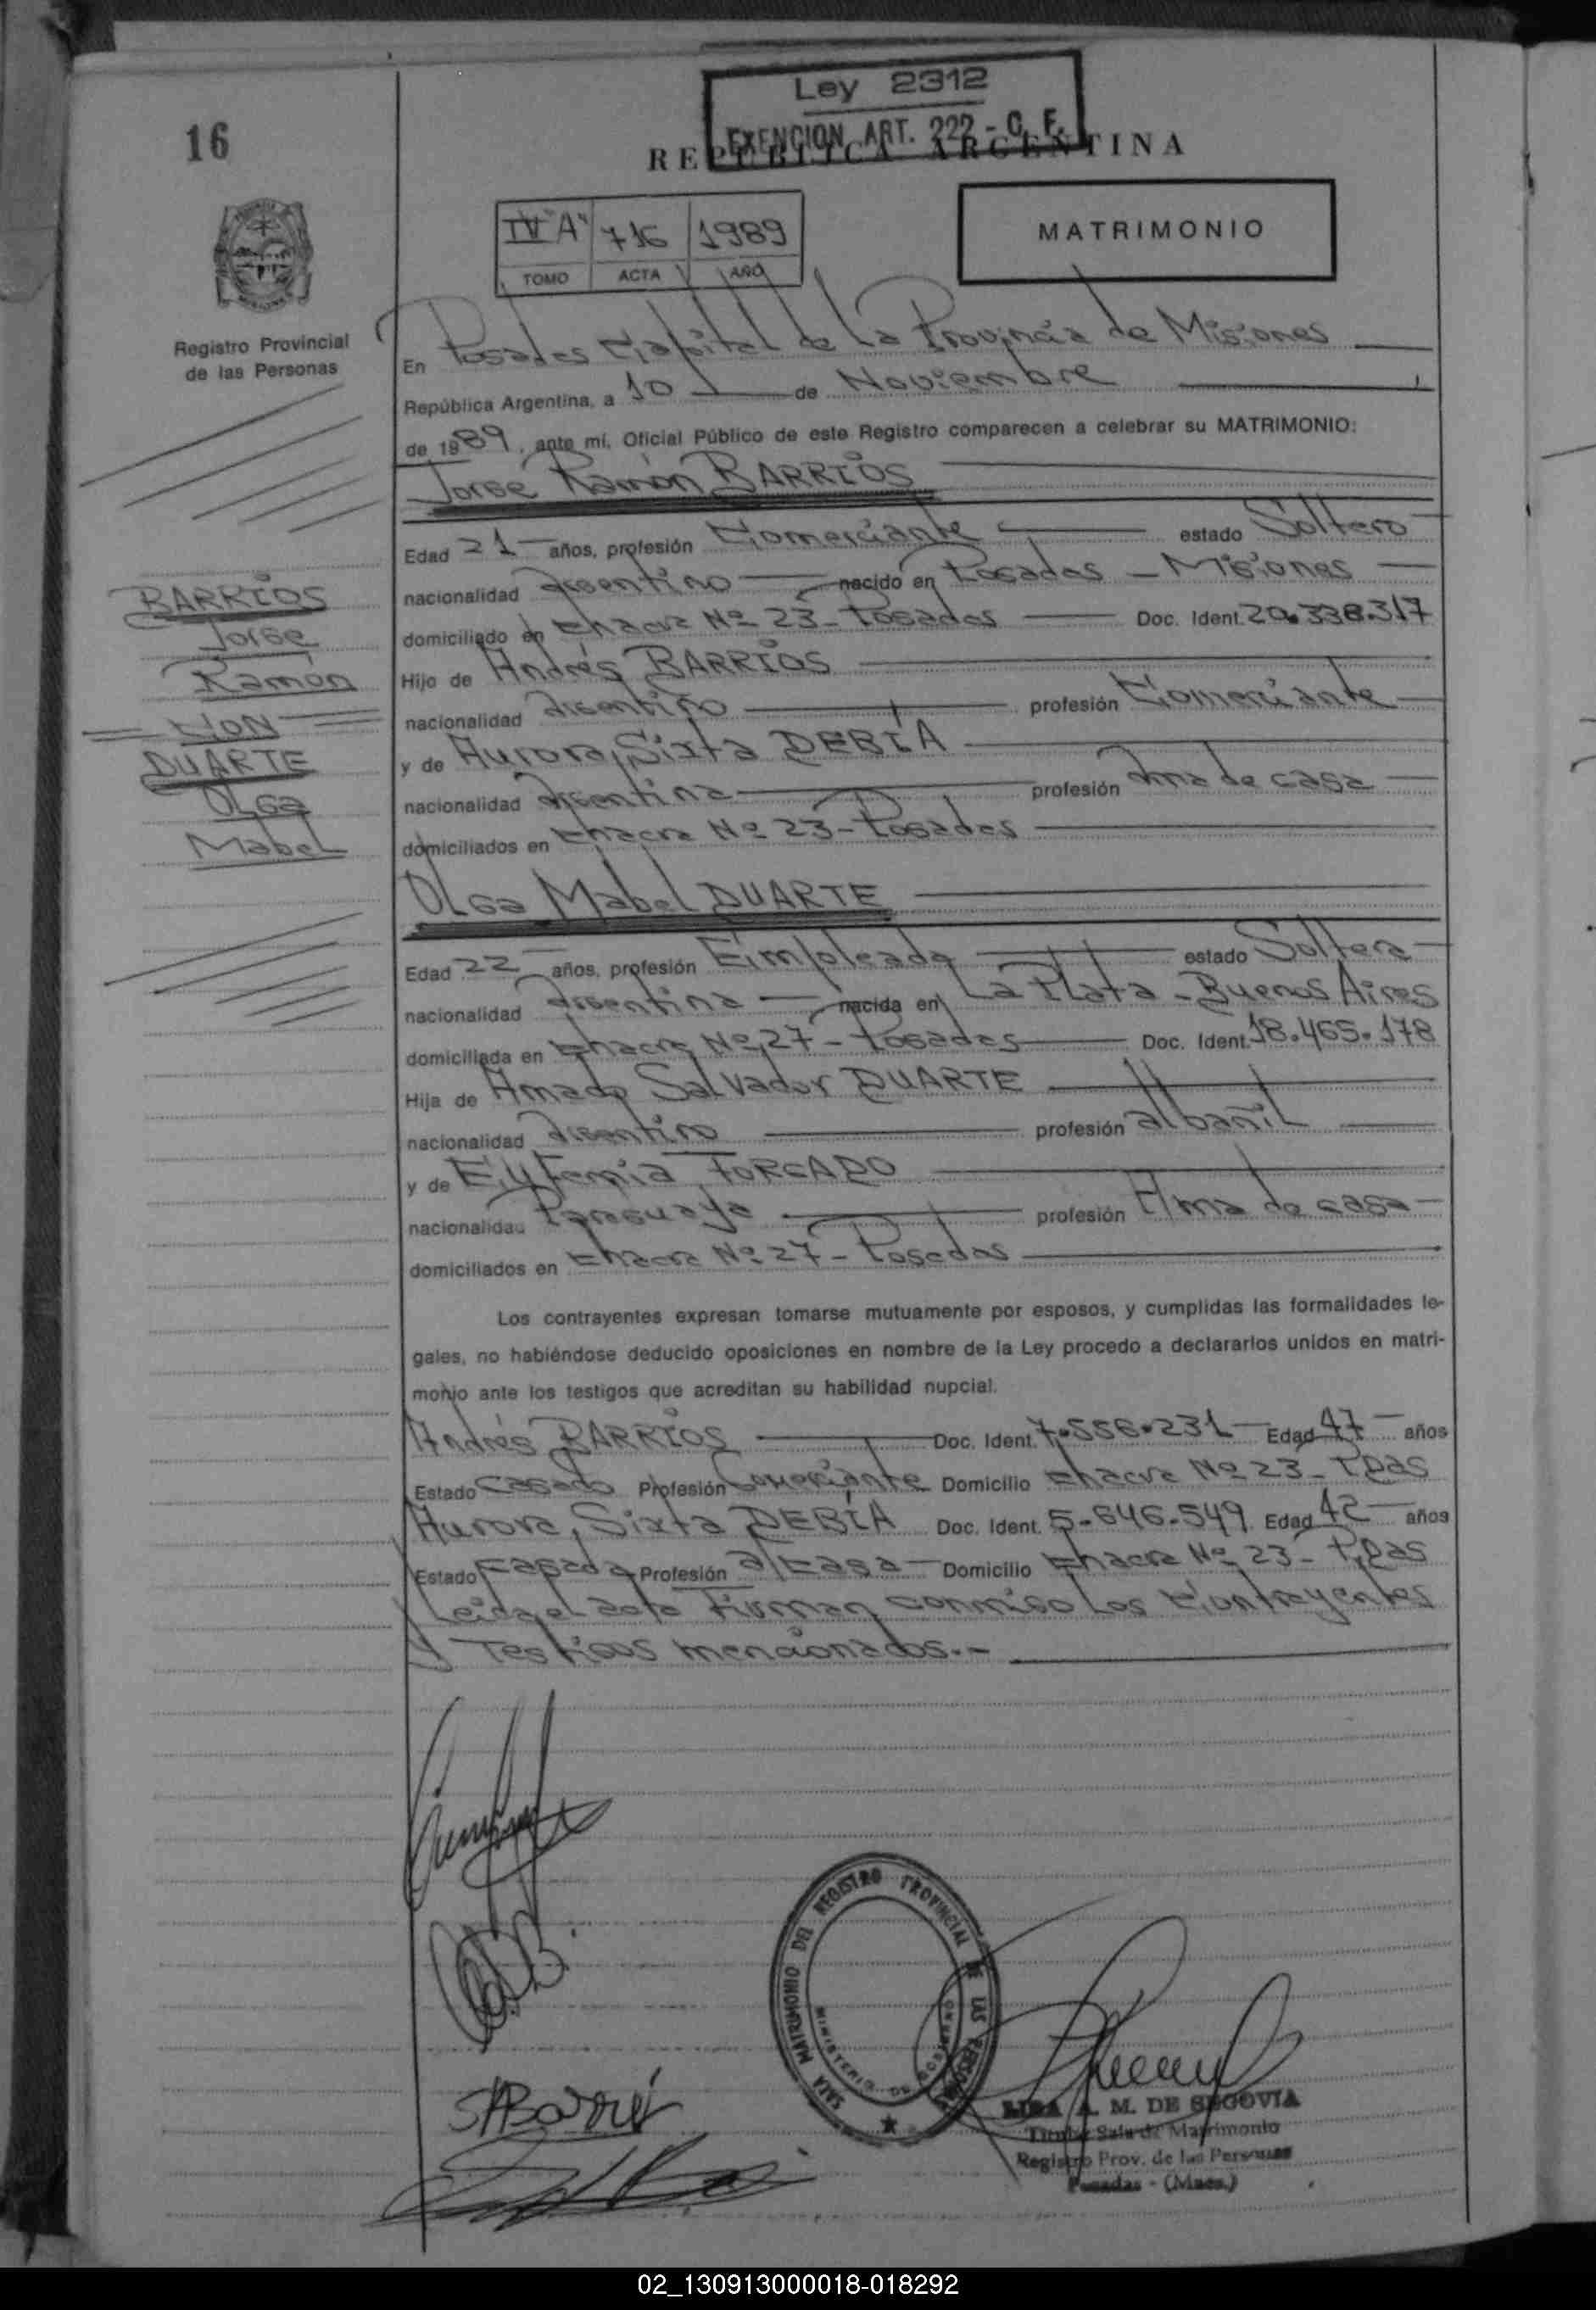 Ley 2312
EXENCION ART. 222 - C. F.
16
REPUBLICA ARGENTINA
IV "A" 716 1989
TOMO ACTA AÑO
MATRIMONIO
Registro Provincial
de las Personas
En Posadas Capital de la Provincia de Misiones
República Argentina, a 10 de Noviembre
de 1989, ante mí, Oficial Público de este Registro comparecen a celebrar su MATRIMONIO:
Jorge Ramón BARRIOS
Edad 21 años, profesión Comerciante estado Soltero
nacionalidad Argentino nacido en Posadas - Misiones
domiciliado en Chacra Nº 23 - Posadas Doc. Ident. 20.338.317
Hijo de Andrés BARRIOS
nacionalidad Argentino profesión Comerciante
y de Aurora Sixta DEBIA
nacionalidad Argentina profesión Ama de casa
domiciliados en Chacra Nº 23 - Posadas
BARRIOS
Jorge
Ramón
CON
DUARTE
Olga
Mabel
Olga Mabel DUARTE
Edad 22 años, profesión Empleada estado Soltera
nacionalidad Argentina nacida en La Plata - Buenos Aires
domiciliada en Chacra Nº 27 - Posadas Doc. Ident. 18.465.178
Hija de Amado Salvador DUARTE
nacionalidad Argentino profesión albañil
y de Eufemia FORCADO
nacionalidad Paraguaya profesión Ama de casa
domiciliados en Chacra Nº 27 - Posadas
Los contrayentes expresan tomarse mutuamente por esposos, y cumplidas las formalidades le-
gales, no habiéndose deducido oposiciones en nombre de la Ley procedo a declararlos unidos en matri-
monio ante los testigos que acreditan su habilidad nupcial.
Andrés BARRIOS Doc. Ident. 7.556.231 Edad 47 años
Estado Casado Profesión Comerciante Domicilio Chacra Nº 23 - Pdas
Aurora Sixta DEBIA Doc. Ident. 5.646.549 Edad 42 años
Estado Casada Profesión a/casa Domicilio Chacra Nº 23 - Pdas
Leida el acta Firman conmigo los Contrayentes
y Testigos mencionados.-
SALA MATRIMONIO DEL REGISTRO PROVINCIAL DE LAS PERSONAS
MINISTERIO DE GOBIERNO
A. M. DE SEGOVIA
Titular Sala de Matrimonio
Registro Prov. de las Personas
Posadas - (Mnes.)
02_130913000018-018292